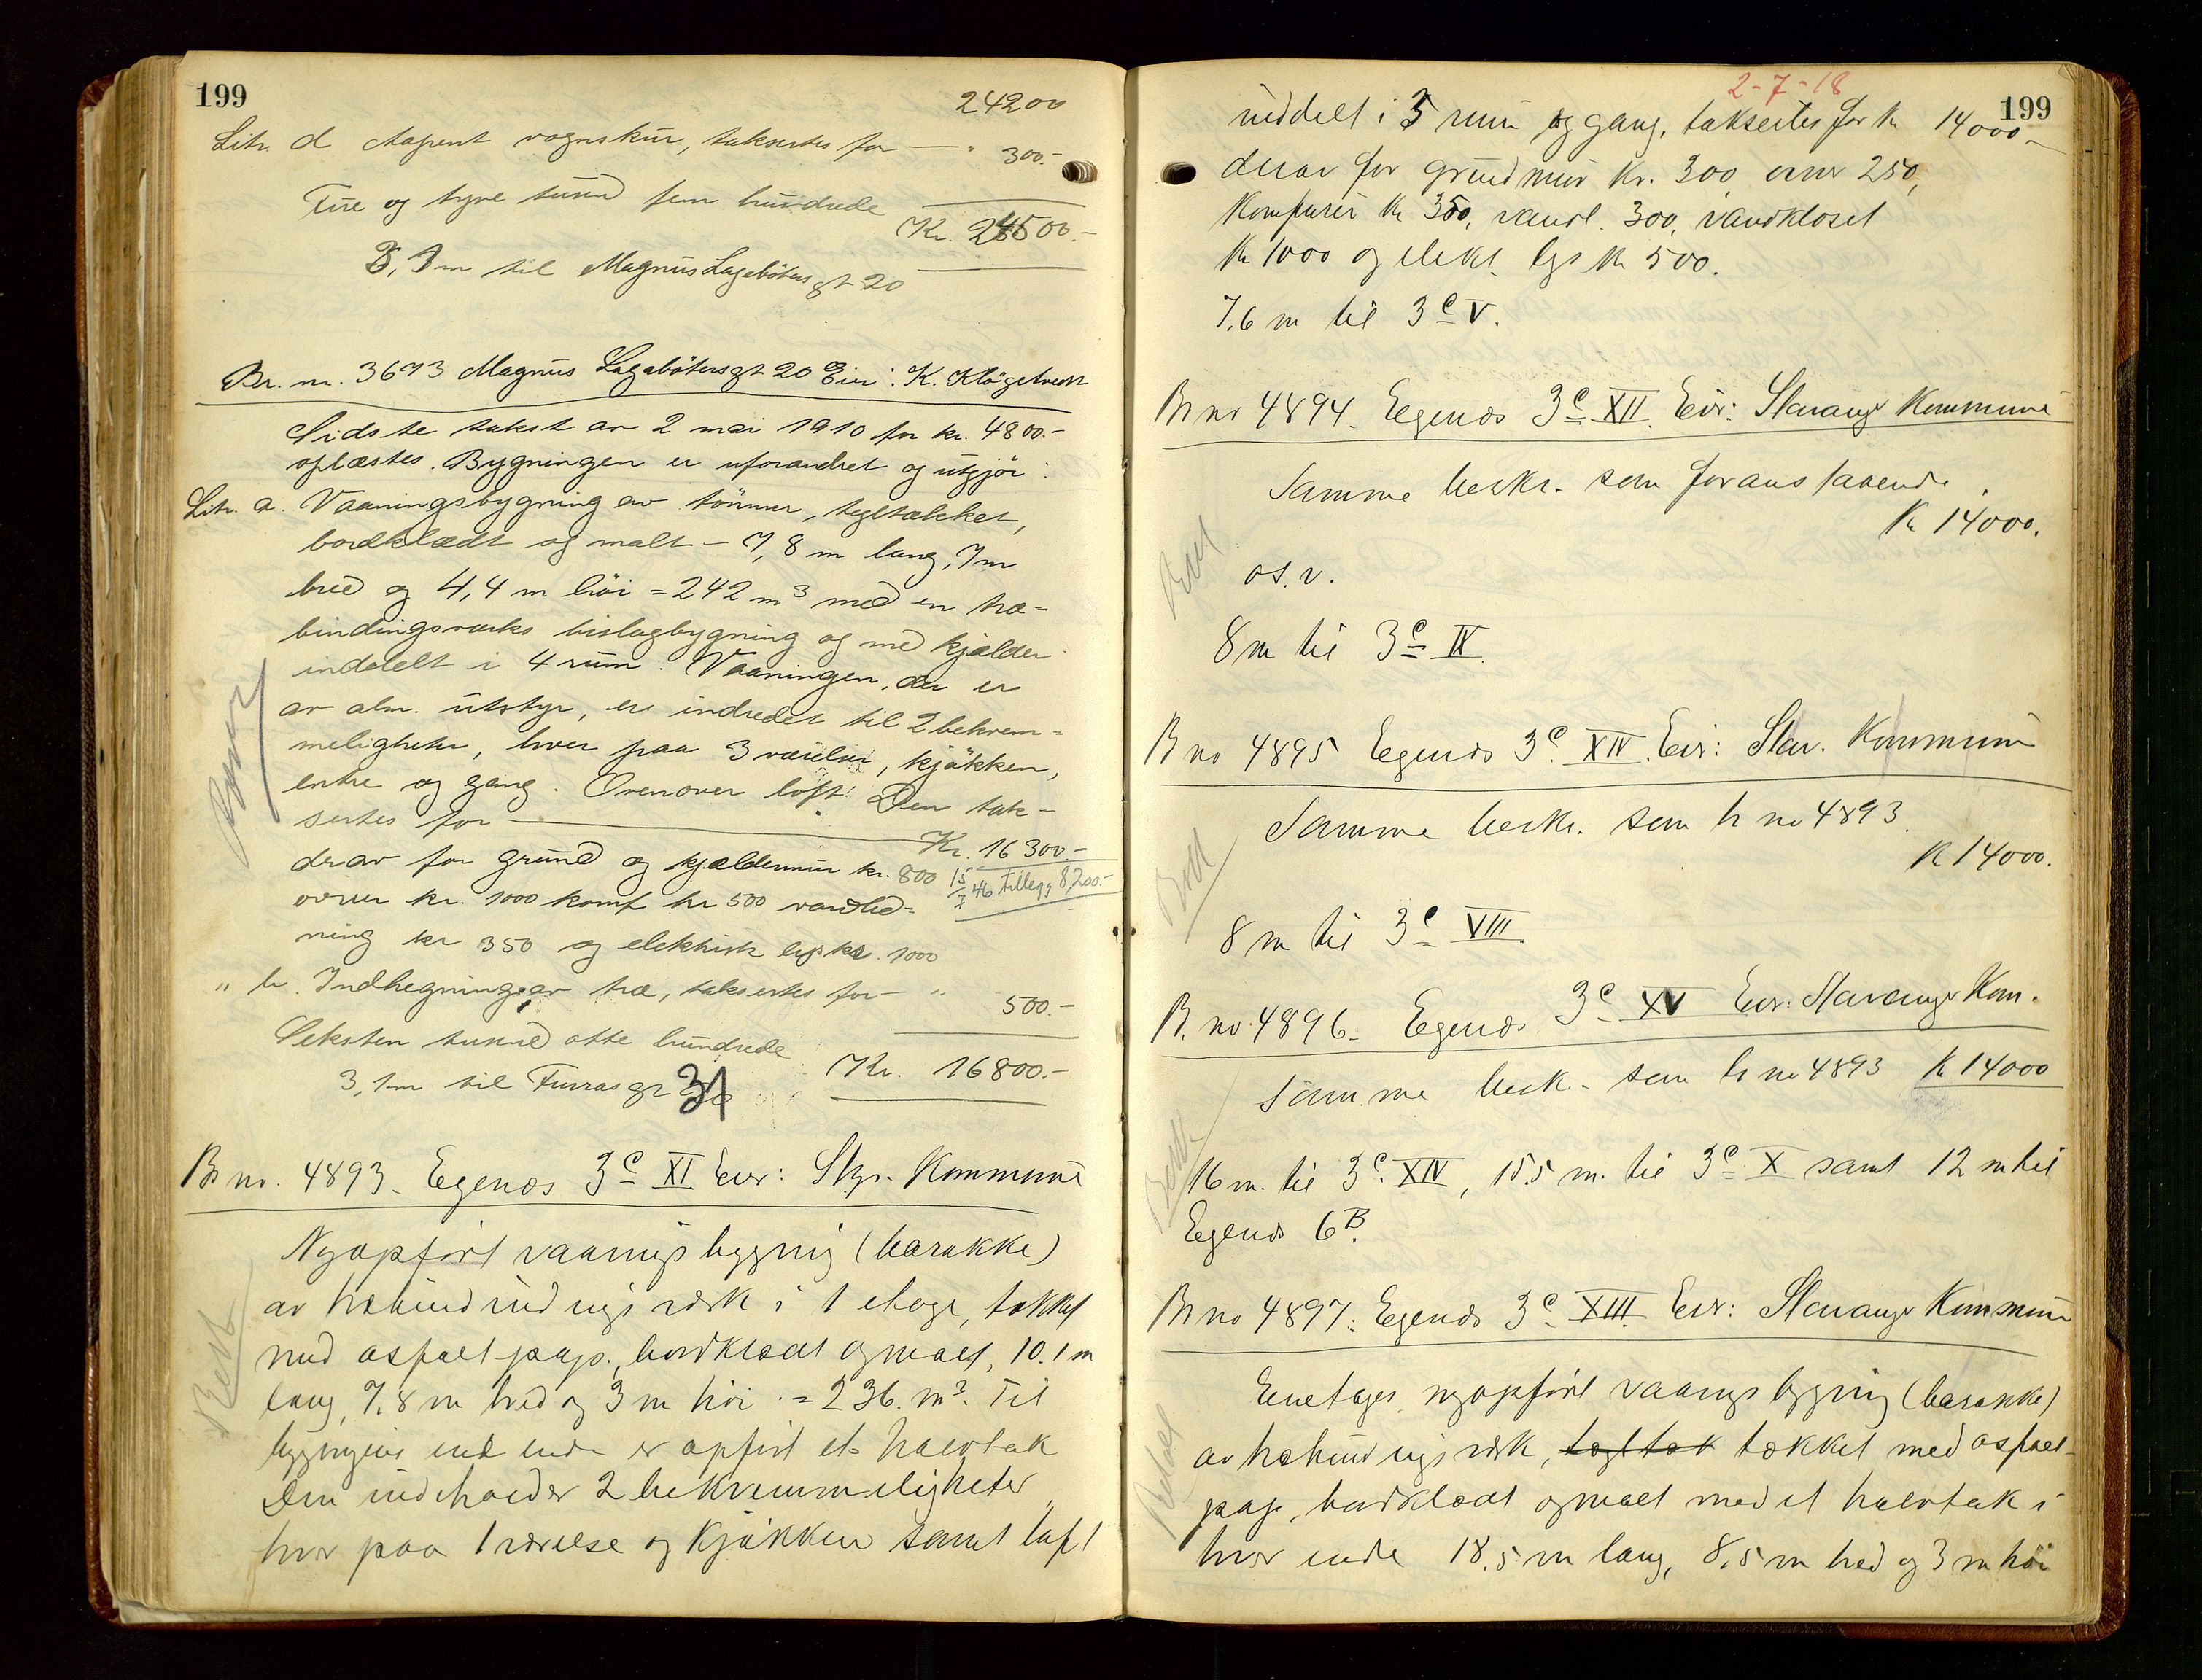 199
24200
Litr. d Aapent vognskur, taksertes for — " 300.-
Fire og tyve tusind fem hundrede Kr. 24500.-
3,1 m til Magnus Lagabøters gt 20
Br. nr. 3673 Magnus Lagabøtersgt 20 Eier: K.
Sidste takst av 2 mai 1910 for kr. 4800.-
oplæstes. Bygningen er uforandret og utgjør:
Litr. a. Vaaningsbygning av tømmer, tegltækket,
bordklædt og malt – 7,8 m lang, 7 m
bred og 4,4 m høi = 242 m³ med en træ-
bindingsverks bislagbygning og med kjælder
inddelt i 4 rum. Vaaningen, der er
av alm. utstyr, er indredet til 2 bekvem-
meligheter, hver paa 3 værelser, kjøkken,
entre og gang. Ovenover loft. Den tak-
sertes for — Kr. 16300.-
derav for grund og kjældermur kr. 800
15/7 46 Tillegg 8200.-
ovner kr. 1000 komf kr 500 vandled-
ning kr 350 og elektrisk lys kr. 1000
" b. Indhegning av træ, taksertes for — " 500.-
Seksten tusind otte hundrede Kr. 16800.-
3,1 m til Furrasgt 31
Br no. 4893. Egenæs 3c XI Eier: Stgr. Kommune
Nyopført vaanings bygning (barakke)
av træbindingsverk i 1 etage, tækket
med asfalt pap., bordklædt og malt, 10.1 m
lang, 7.8 m bred og 3 m høi = 236. m³. Til
bygningens ene ende er opført et halvtak
Den indeholder 2 bekvemmeligheter
hver paa 1 værelse og kjøkken samt loft
2-7-18
199
inddelt i 3 rum og gang, taksertes for kr 14000.-
derav for grundmur kr. 300, ovner 250,
komfurer kr 350, vandl. 300, vandkloset
kr 1000 og elekt. lys kr 500.
7.6 m til 3c V.
Br no 4894. Egenæs 3c XII. Eier: Stavanger Kommune
Samme beskr. som foranstaaende.
Kr 14000.
o.s.v.
8 m til 3c IX.
Br no 4895 Egenæs 3c. XIV. Eier: Stav. Kommune
Samme beskr. som br no 4893.
kr 14000.
8 m til 3c VIII.
B. no. 4896. Egenæs 3c XV Eier: Stavanger Kom.
Samme besk. som br no 4893 kr 14000
16 m. til 3c. XIV, 15.5 m. til 3c X samt 12 m til
Egenæs 6B.
Br no 4897: Egenæs 3c XIII. Eier: Stavanger Kommune
Enetages nyopført vaanings bygning (barakke)
av træbindingsverk, tegltæk tækket med asfalt-
pap, bordklædt og malt med et halvtak i
hver ende 18.5 m lang, 8.5 m bred og 3 m høi